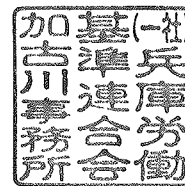 (一社
兵庫労働
基準連合会
加古川事務所